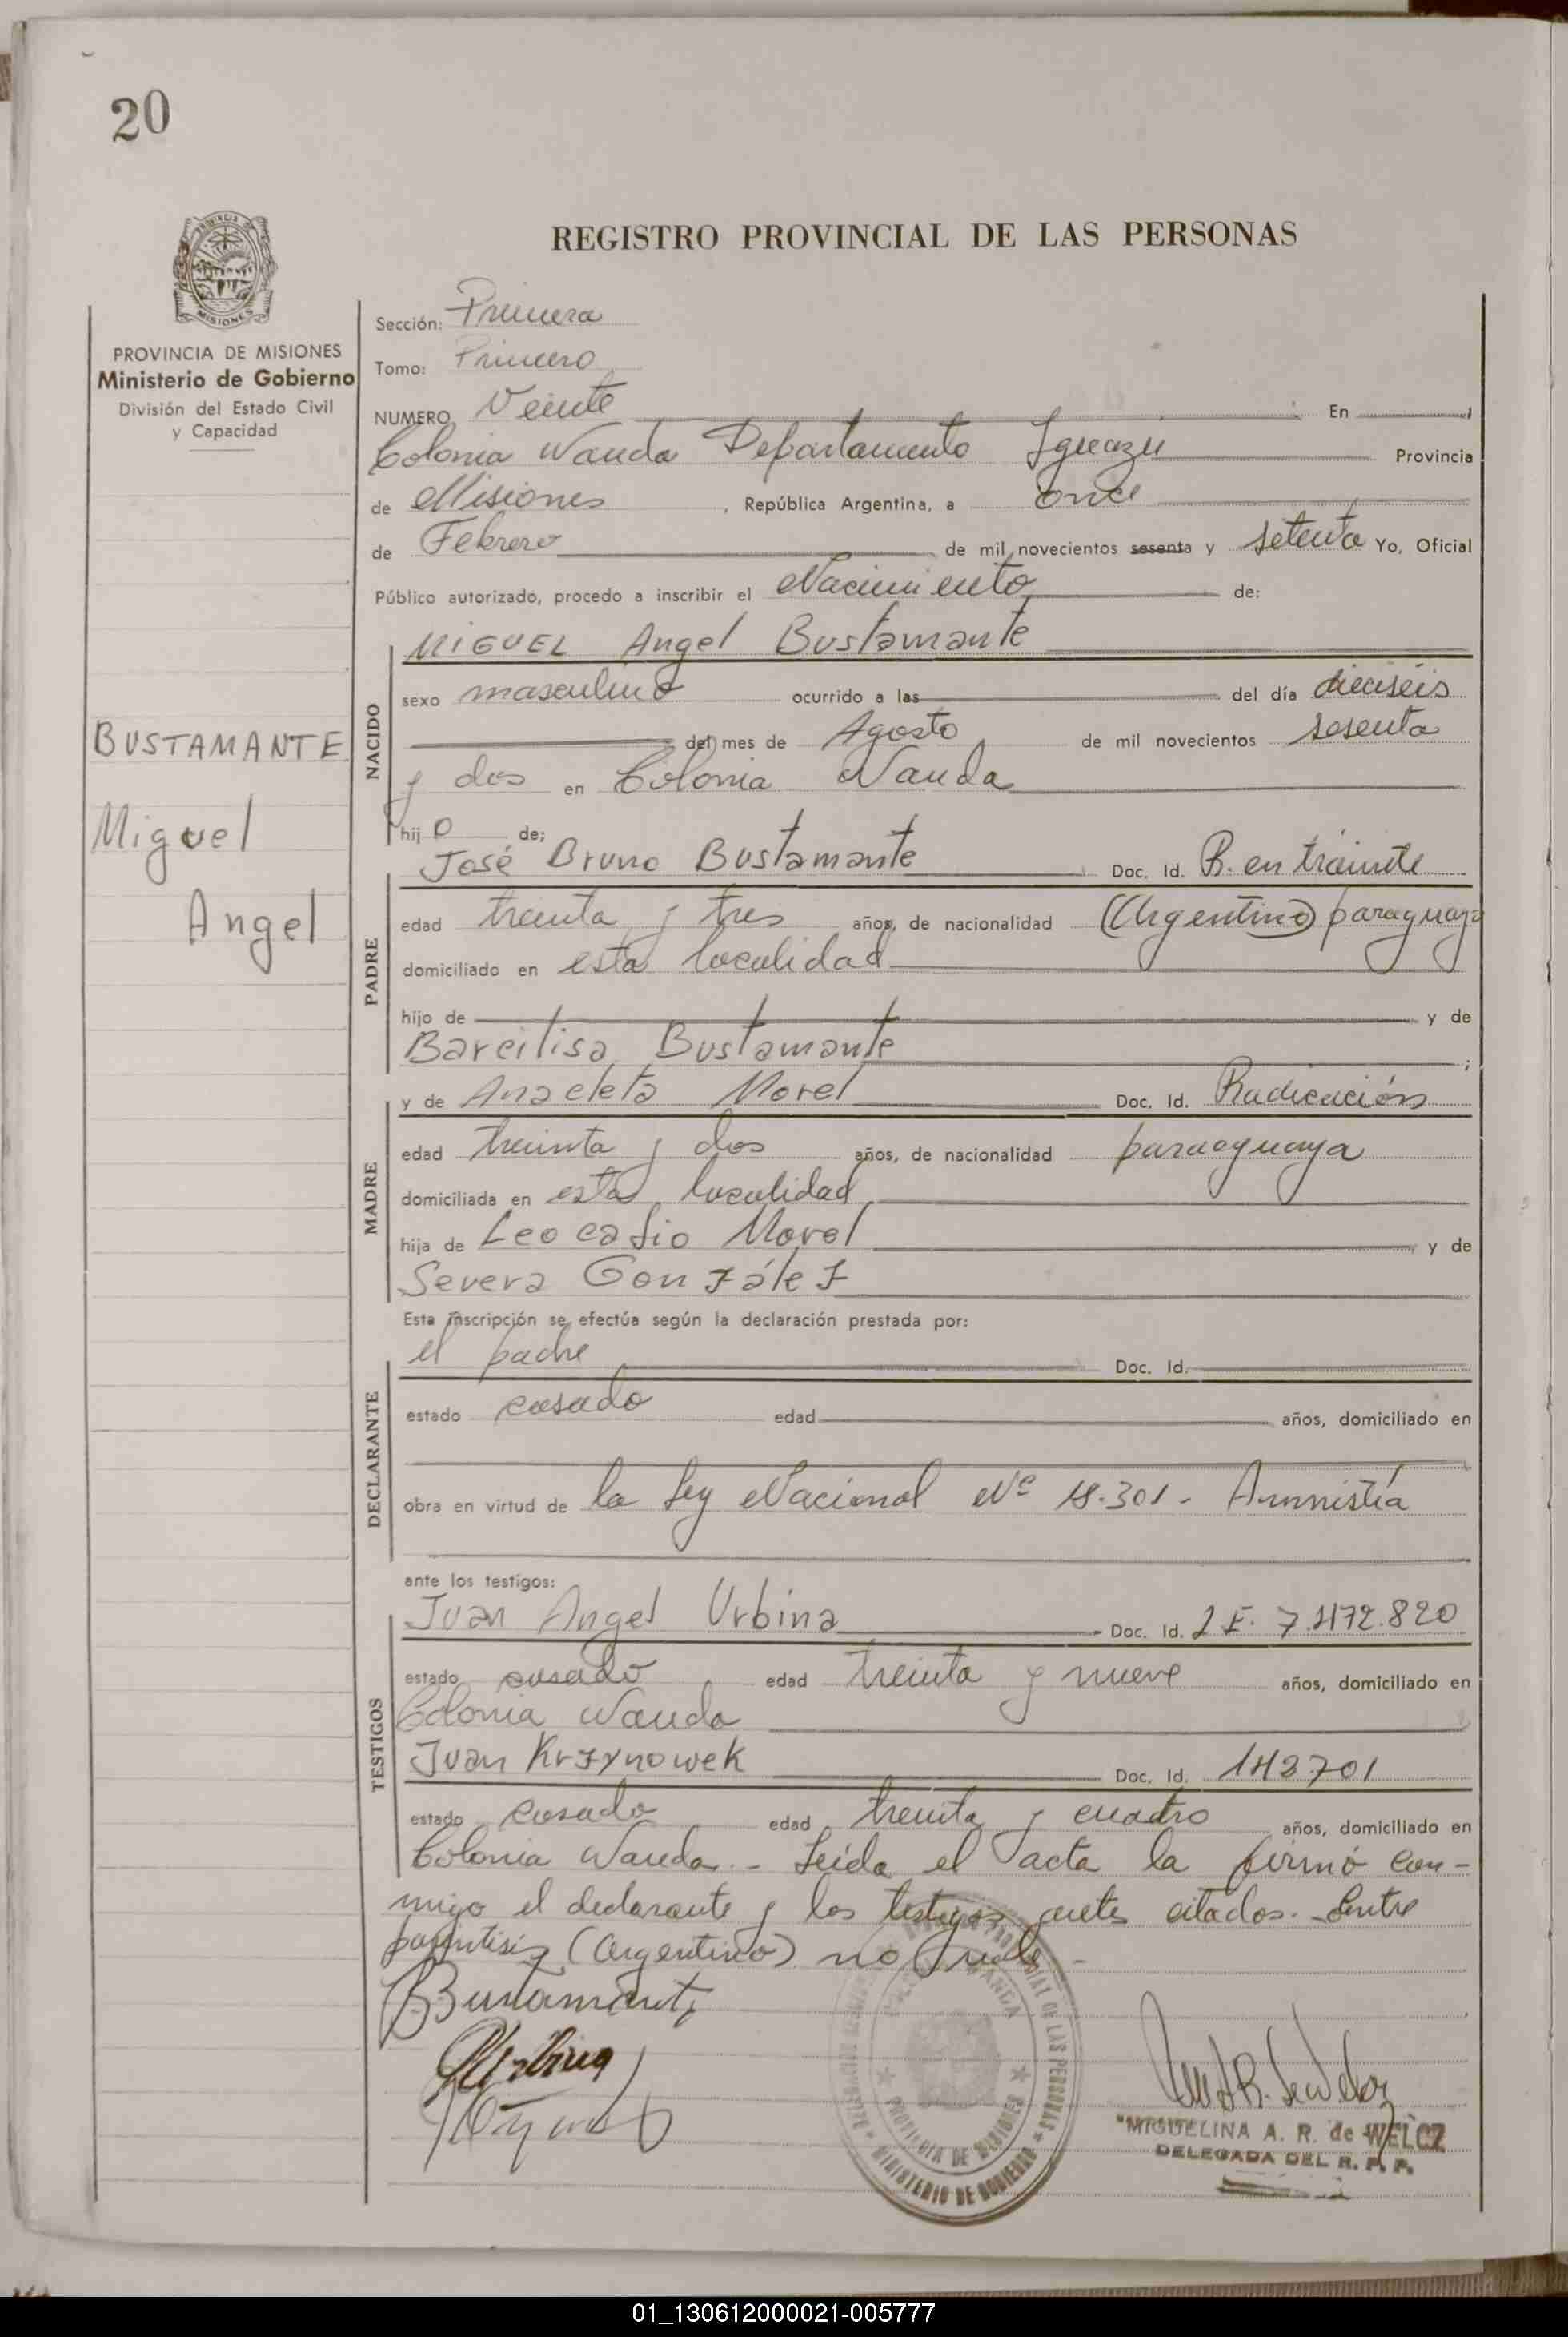 20
REGISTRO PROVINCIAL DE LAS PERSONAS
PROVINCIA DE MISIONES
MISIONES
PROVINCIA DE MISIONES
Ministerio de Gobierno
División del Estado Civil
y Capacidad
BUSTAMANTE
Miguel
Angel
Sección: Primera
Tomo: Primero
NUMERO Veinte En
Colonia Wanda Departamento Iguazú Provincia
de Misiones, República Argentina, a once
de Febrero de mil novecientos sesenta y setenta Yo, Oficial
Público autorizado, procedo a inscribir el Nacimiento de:
NACIDO
MIGUEL Angel Bustamante
sexo masculino ocurrido a las del día dieciséis
del mes de Agosto de mil novecientos sesenta
y dos en Colonia Wanda
hijo de;
PADRE
José Bruno Bustamante Doc. Id. R. en trámite
edad treinta y tres años, de nacionalidad (Argentino) paraguayo
domiciliado en esta localidad
hijo de y de
Barcilisa Bustamante ;
MADRE
y de Anacleta Morel Doc. Id. Radicación
edad treinta y dos años, de nacionalidad paraguaya
domiciliada en esta localidad
hija de Leocadio Morel y de
Severa González
Esta inscripción se efectúa según la declaración prestada por:
DECLARANTE
el padre Doc. Id.
estado casado edad años, domiciliado en
obra en virtud de la Ley Nacional Nº 18.301 - Amnistía
ante los testigos:
TESTIGOS
Juan Angel Urbina Doc. Id. L E. 7.472.820
estado casado edad treinta y nueve años, domiciliado en
Colonia Wanda
Juan Krzynowek Doc. Id. 143701
estado casado edad treinta y cuatro años, domiciliado en
Colonia Wanda. - Leída el acta la firmó con-
migo el declarante y los testigos antes citados. - Entre
paréntisis (argentino) no vale -
B Bustamante
Urbina
REGISTRO PROVINCIAL DE LAS PERSONAS
MINISTERIO DE GOBIERNO
WANDA
PROVINCIA DE MISIONES
MIGUELINA A. R. de WELCZ
DELEGADA DEL R. P. P.
01_130612000021-005777